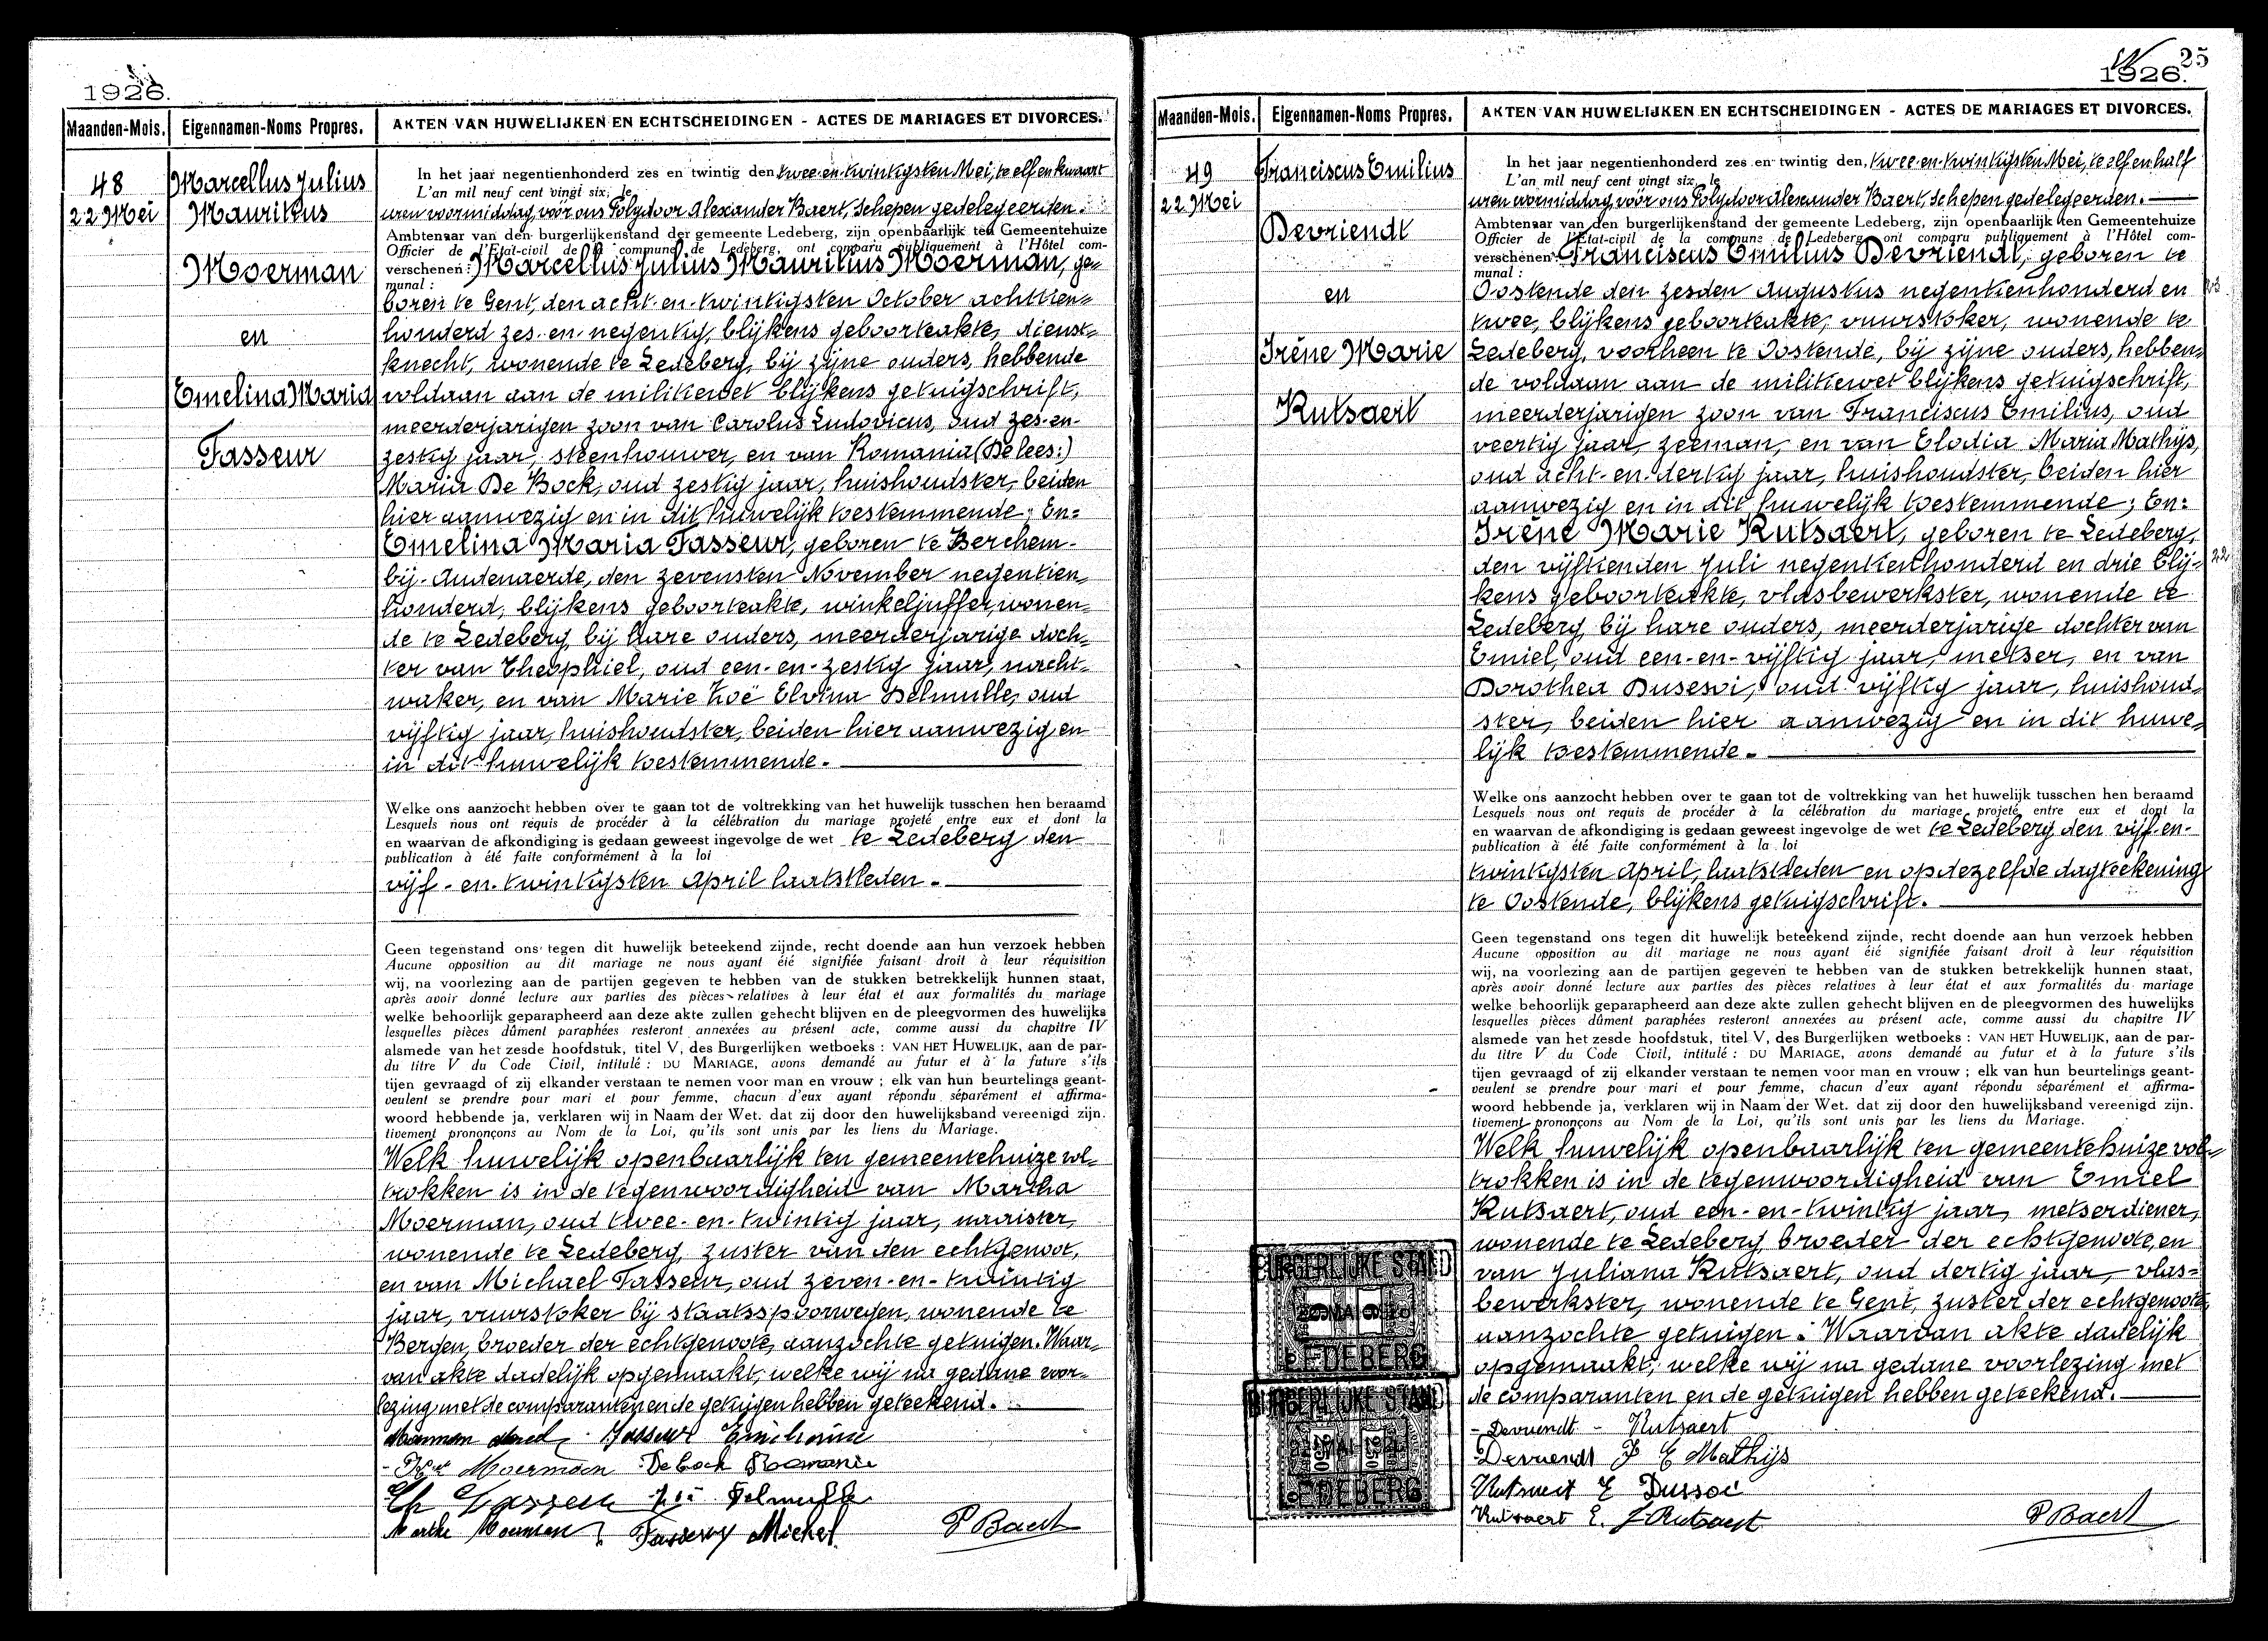 1926.
Maanden-Mois.
Eigennamen-Noms Propres.
AKTEN VAN HUWELIJKEN EN ECHTSCHEIDINGEN - ACTES DE MARIAGES ET DIVORCES.
48
22 Mei
Marcellus Julius
Mauritius
Moerman
en
Emelina Maria
Fasseur
In het jaar negentienhonderd zes en twintig den twee-en-twintigsten Mei, te elf en kwaart
L'an mil neuf cent vingt six, le
uren voormiddag, vóór ons Polydoor Alexander Baert, Schepen gedelegeerden.
Ambtenaar van den burgerlijkenstand der gemeente Ledeberg, zijn openbaarlijk ten Gemeentehuize
Officier de l'Etat-civil de la commune de Ledeberg, ont comparu publiquement à l'Hôtel com-
verschenen: Marcellus Julius Mauritius Moerman, ge-
munal :
boren te Gent, den acht-en-twintigsten October achttien-
honderd zes-en-negentig, blijkens geboorteakte, dienst-
knecht, wonende te Ledeberg, bij zijne ouders, hebbende
voldaan aan de militiewet blijkens getuigschrift,
meerderjarigen zoon van Carolus Ludovicus, oud zes-en-
zestig jaar, steenhouwer, en van Romania (De lees:)
Maria De Bock, oud zestig jaar, huishoudster, beiden
hier aanwezig en in dit huwelijk toestemmende; En:
Emelina Maria Fasseur, geboren te Berchem-
bij-Audenaerde, den zevensten November negentien-
honderd, blijkens geboorteakte, winkeljuffer, wonen-
de te Ledeberg, bij hare ouders, meerderjarige doch-
ter van Theophiel, oud een-en-zestig jaar, nacht-
waker, en van Marie Zoë Elvina Delmulle, oud
vijftig jaar, huishoudster, beiden hier aanwezig en
in dit huwelijk toestemmende.
Welke ons aanzocht hebben over te gaan tot de voltrekking van het huwelijk tusschen hen beraamd
Lesquels nous ont requis de procéder à la célébration du mariage projeté entre eux et dont la
en waarvan de afkondiging is gedaan geweest ingevolge de wet te Ledeberg den
publication à été faite conformément à la loi
vijf-en-twintigsten April laatstleden.
Geen tegenstand ons tegen dit huwelijk beteekend zijnde, recht doende aan hun verzoek hebben
Aucune opposition au dit mariage ne nous ayant éié signifiée faisant droit à leur réquisition
wij, na voorlezing aan de partijen gegeven te hebben van de stukken betrekkelijk hunnen staat,
après avoir donné lecture aux parties des pièces relatives à leur état et aux formalités du mariage
welke behoorlijk geparapheerd aan deze akte zullen gehecht blijven en de pleegvormen des huwelijks
lesquelles pièces dûment paraphées resteront annexées au présent acte, comme aussi du chapitre IV
alsmede van het zesde hoofdstuk, titel V, des Burgerlijken wetboeks : VAN HET HUWELIJK, aan de par-
du titre V du Code Civil, intitulé : DU MARIAGE, avons demandé au futur et à la future s'ils
tijen gevraagd of zij elkander verstaan te nemen voor man en vrouw ; elk van hun beurtelings geant-
veulent se prendre pour mari et pour femme, chacun d'eux ayant répondu séparément et affirma-
woord hebbende ja, verklaren wij in Naam der Wet. dat zij door den huwelijksband vereenigd zijn.
tivement prononçons au Nom de la Loi, qu'ils sont unis par les liens du Mariage.
Welk huwelijk openbaarlijk ten gemeentehuize vol-
trokken is in de tegenwoordigheid van Martha
Moerman, oud twee-en-twintig jaar, naaister,
wonende te Ledeberg, zuster van den echtgenoot,
en van Michael Fasseur, oud zeven-en-twintig
jaar, vuurstoker bij staatsspoorwegen, wonende te
Bergen, broeder der echtgenoote, aanzochte getuigen. Waar-
van akte dadelijk opgemaakt, welke wij na gedane voor-
lezing met de comparanten en de getuigen hebben geteekend.
Moerman Fasseur
Moerman De bock Romanie
Fasseur Zoë Delmulle
Marthe Moerman Fasseur Michel P Baert
25
1926.
Maanden-Mois.
Eigennamen-Noms Propres.
AKTEN VAN HUWELIJKEN EN ECHTSCHEIDINGEN - ACTES DE MARIAGES ET DIVORCES.
49
22 Mei
Franciscus Emilius
Devriendt
en
Irêne Marie
Rutsaert
In het jaar negentienhonderd zes en twintig den, twee-en-twintigsten Mei, te elf en half
L'an mil neuf cent vingt six, le
uren voormiddag, vóór ons Polydoor Alexander Baert, Schepen gedelegeerden.
Ambtenaar van den burgerlijkenstand der gemeente Ledeberg, zijn openbaarlijk ten Gemeentehuize
Officier de l'Etat-civil de la commune de Ledeberg ont comparu publiquement à l'Hôtel com-
verschenen: Franciscus Emilius Devriendt, geboren te
munal :
Oostende den zesden Augustus negentienhonderd en
23
twee, blijkens geboorteakte, vuurstoker, wonende te
Ledeberg, voorheen te Oostende, bij zijne ouders, hebben-
de voldaan aan de militiewet blijkens getuigschrift,
meerderjarigen zoon van Franciscus Emilius, oud
veertig jaar, zeeman, en van Elodia Maria Mathijs,
oud acht-en-dertig jaar, huishoudster, beiden hier
aanwezig en in dit huwelijk toestemmende; En:
Irêne Marie Rutsaert, geboren te Ledeberg,
den vijftienden Juli negentienhonderd en drie blij-
22
kens geboorteakte, vlasbewerkster, wonende te
Ledeberg, bij hare ouders, meerderjarige dochter van
Emiel, oud een-en-vijftig jaar, metser, en van
Dorothea Dusesoi, oud vijftig jaar, huishoud-
ster, beiden hier aanwezig en in dit huwe-
lijk toestemmende.
Welke ons aanzocht hebben over te gaan tot de voltrekking van het huwelijk tusschen hen beraamd
Lesquels nous ont requis de procéder à la célébration du mariage projeté entre eux et dont la
en waarvan de afkondiging is gedaan geweest ingevolge de wet te Ledeberg den vijf-en-
publication à été faite conformément à la loi
twintigsten April, laatstleden en op dezelfde dagteekening
te Oostende, blijkens getuigschrift.
Geen tegenstand ons tegen dit huwelijk beteekend zijnde, recht doende aan hun verzoek hebben
Aucune opposition au dit mariage ne nous ayant éié signifiée faisant droit à leur réquisition
wij, na voorlezing aan de partijen gegeven te hebben van de stukken betrekkelijk hunnen staat,
après avoir donné lecture aux parties des pièces relatives à leur état et aux formalités du mariage
welke behoorlijk geparapheerd aan deze akte zullen gehecht blijven en de pleegvormen des huwelijks
lesquelles pièces dûment paraphées resteront annexées au présent acte, comme aussi du chapitre IV
alsmede van het zesde hoofdstuk, titel V, des Burgerlijken wetboeks : VAN HET HUWELIJK, aan de par-
du titre V du Code Civil, intitulé : DU MARIAGE, avons demandé au futur et à la future s'ils
tijen gevraagd of zij elkander verstaan te nemen voor man en vrouw ; elk van hun beurtelings geant-
veulent se prendre pour mari et pour femme, chacun d'eux ayant répondu séparément et affirma-
woord hebbende ja, verklaren wij in Naam der Wet. dat zij door den huwelijksband vereenigd zijn.
tivement prononçons au Nom de la Loi, qu'ils sont unis par les liens du Mariage.
Welk huwelijk openbaarlijk ten gemeentehuize vol-
trokken is in de tegenwoordigheid van Emiel
Rutsaert, oud een-en-twintig jaar, metserdiener,
wonende te Ledeberg, broeder der echtgenoote, en
van Juliana Rutsaert, oud dertig jaar, vlas-
bewerkster, wonende te Gent, zuster der echtgenoote,
aanzochte getuigen. Waarvan akte dadelijk
opgemaakt, welke wij na gedane voorlezing met
de comparanten en de getuigen hebben geteekend.
BURGERLIJKE STAND
LEDEBERG
BURGERLIJKE STAND
LEDEBERG
- Devriendt - Rutsaert
Devriendt F E Mathijs
Rutsaert E Dussoi
Rutsaert E. J. Rutsaert P Baert